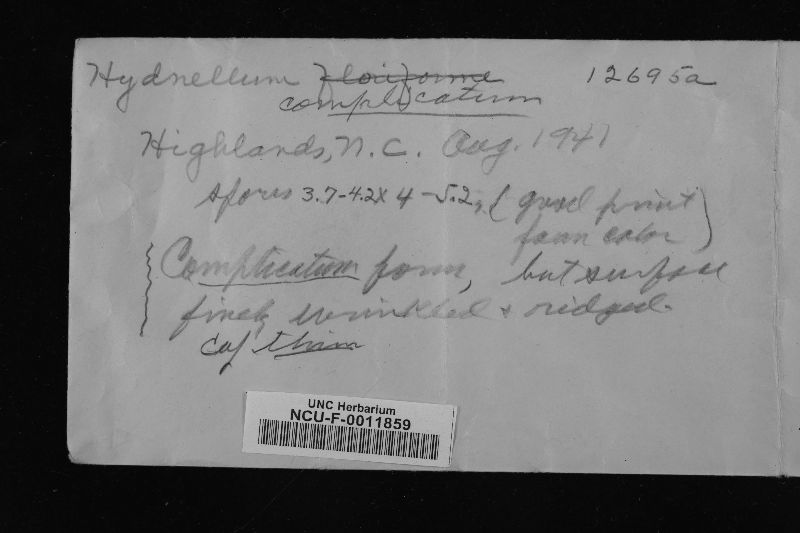 Hydnellum floriforme 12695a
complicatum
Highlands, N.C. Aug. 1941
spores 3.7-4.2 x 4-5.2, (good print
fawn color)
Complicatum form, but surface
finely wrinkled & ridged.
cap thin
UNC Herbarium
NCU-F-0011859